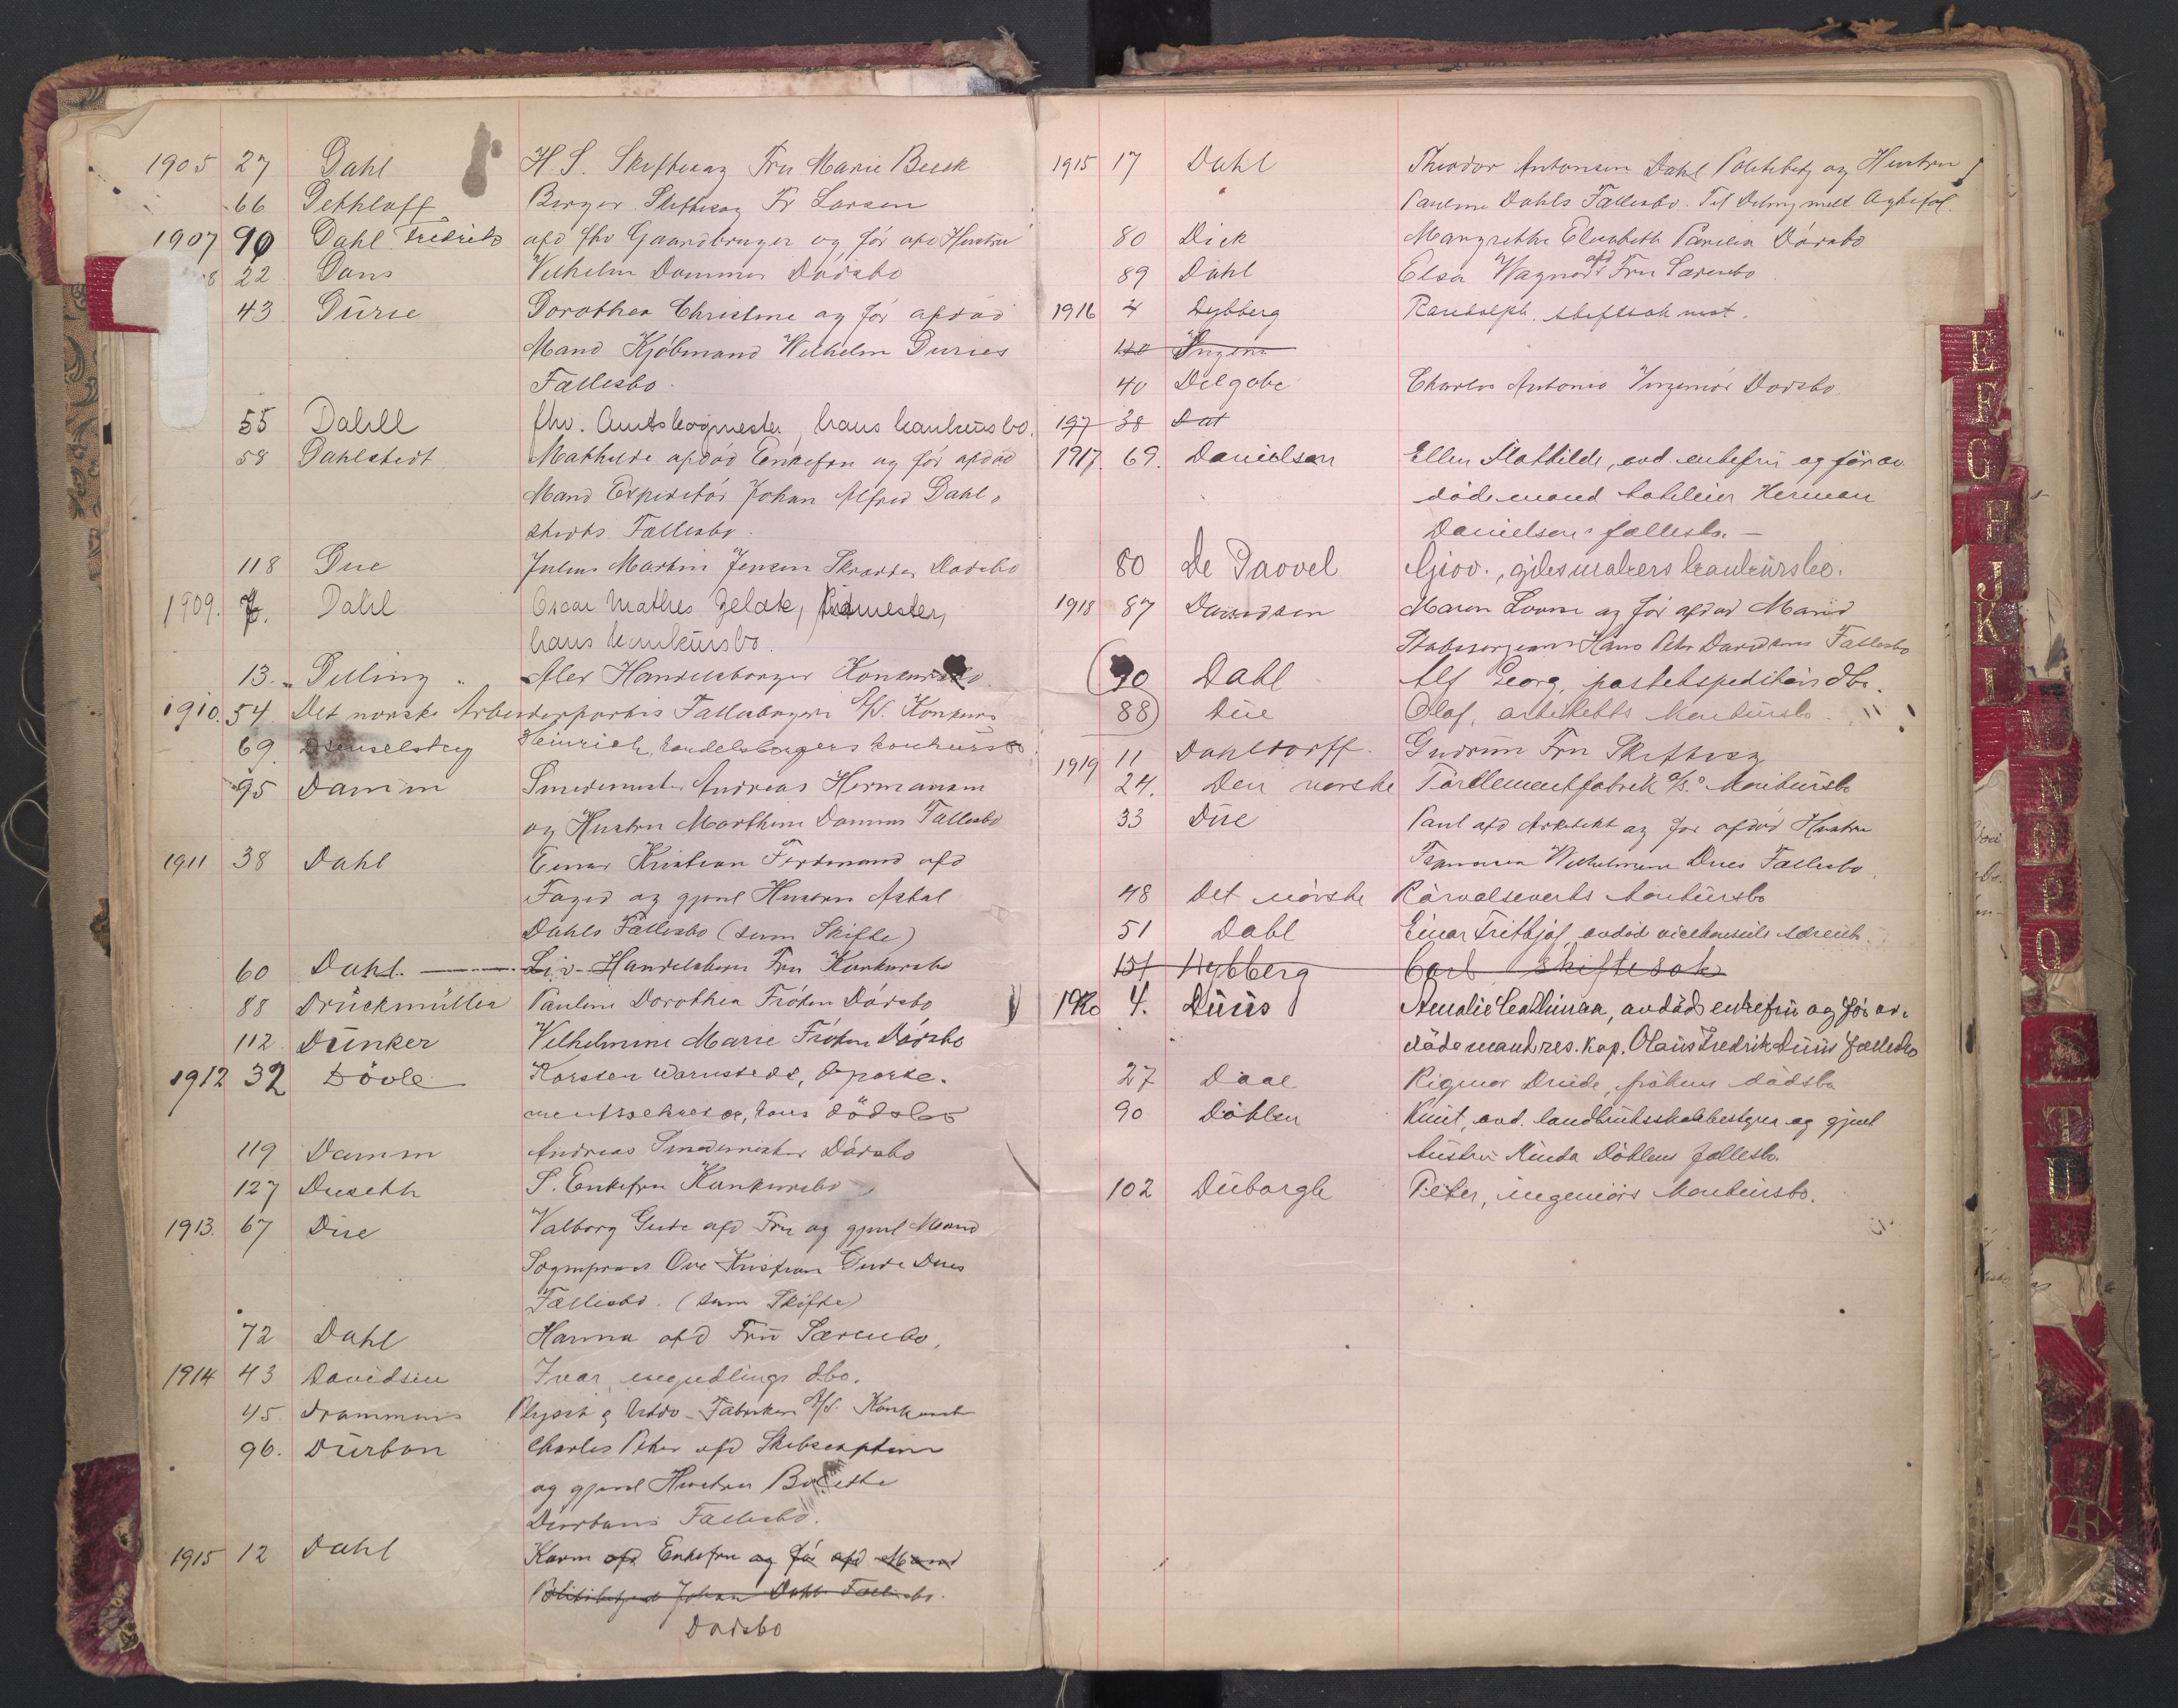 1905 27 Dahl H. S. Skiftesag Fru Marie Beck
66 Dethloff Birger Skiftesag Fr Larsen
1907 90 Dahl Fredrik afd fhv Gaardbruger og før afd Hustru
22 Dans Vilhelm Dødsbo
43 Dürie Dorothea Christine og før afdød
Mand Kjøbmand Wilhelm Duries
Fællesbo
55 Dahll fhv. hans konkursbo.
58 Dahlstedt Mathilde afdød Enkefru og før afdød
Mand Expeditør Johan Alfred Dahl-
stedts Fællesbo.
118 Due Julius Martin Jensen Skrædder Dødsbo
1909. 7. Dahl Oscar Mathes
hans konkursbo.
13. " Delling " Alex Handelsborger Konkursbo
1910. 54. Det norske Arbeiderpartis Fællesbageri A/S. Konkurs
69. Heinrich, handelsborgers konkursbo
95 Damm Smedemester Andreas Hermansen
og Hustru Marthine Damms Fællesbo
1911 38 Dahl Einar Kristian Ferdinand afd
Foged og gjenl Hustru Astal
Dahls Fællesbo (sum Skifte)
60 Dahl. Liv - Handelsborg Fru Konkursbo
88 Drückmüller Pauline Dorothea Frøken Dødsbo
112 Dunker Wilhelmine Marie Frøken Dødsbo
1912 32 Døvle Karsten Warnstedt, departe-
mentssekretær, hans dødsbo
119 Damm Andreas Smedemester Dødsbo
127 Duseth S. Enkefru Konkursbo
1913. 67 Due Valborg Gude afd Fru og gjenl Mand
Sogneprest Ove Kristian Gude Dues
Fællesbo. (sum Skifte)
72 Dahl Hanna afd Fru Særeubo,
1914 43 Davidsen Ivar, ungutlings dbo.
45 Drammens Plysch & Fabriker A/S. Konkursbo
96. Durban Charles Peter afd Skibscaptein
og gjenl Hustru Bolette
Durbans Fællesbo.
1915 12 Dahl Karen afd Enkefru og før afd Mand
Politibetjent Johan Dahls Fællesbo.
Dødsbo
1915 17 Dahl Theodor Antonsen Dahl Politibetj og Hustru
Pauline Dahls Fællesbo. Til Deling
80 Dick Margrethe Elisabeth Dødsbo
89 Dahl Elsa Wagner afd Fru Særeubo
1916 4 Dybberg Randolph, skiftsak mot.
Ingen
40 Delgobe Charles Antonio Ingeniør Dødsbo.
197 38 Dat
1917. 69. Danielsen Ellen Mathilde, avd. enkefru og før av
døde mand hoteleier Herman
Danielsens fællesbo. —
80 De Paovel Giov., gibsmakers konkursbo.
1918 87 Davidsen Maren Lovise og før afdød Mand
Stabssergeant Hans Peter Davidsens Fællesbo
90 Dahl Alf Georg, postekspeditørs dbo.
88 Due Olaf, arkitekts konkursbo.
1919 11 Dahldorff Gudrun Fru Skiftesag
24. Den norske Tørelementfabrik A/S. Konkursbo
33 Due Paul afd Arkitekt og før afdød Hustru
Wilhelmine Dues Fællesbo.
48 Det norske Rørvalseverks konkursbo
51 Dahl Einar Fritbjof, avdød vicekonsuls særeubo.
151 Dybberg Carl skiftesak
1920 4. Duus Amalie Cathinca, avdød enkefru og før av-
døde mand res. kap. Olaus Fredrik Duus fællesbo
27 Daae Rigmor Drude, frøkens dødsbo
90 Døhlen Knut, avd. landbruksskolebestyrer og gjenl
hustru Minda Døhlens fællesbo.
102 Duborgh Peter, ingeniørs konkursbo.
E
F
G
H
J
K
L
N
O
P
Q
S
T
U